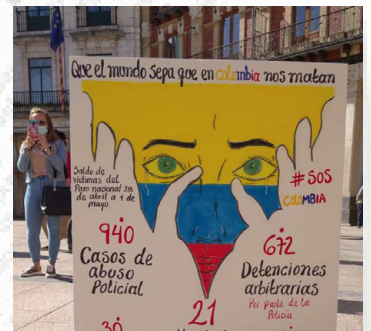 Que el mundo sepa que en colombia nos matan
Saldo de
víctimas del
Paro nacional 28
de abril a 1 de
mayo
# SOS
COLOMBIA
940
Casos de
abuso
Policial
672
Detenciones
arbitrarias
Por parte de la
Policía
21
30